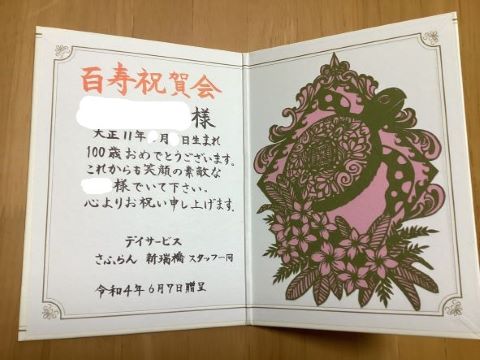 百寿祝賀会
様
大正11年 月 日生まれ
100歳おめでとうございます。
これからも笑顔の素敵な
様でいて下さい。
心よりお祝い申し上げます。
デイサービス
さふらん 新瑞橋 スタッフ一同
令和4年6月7日贈呈